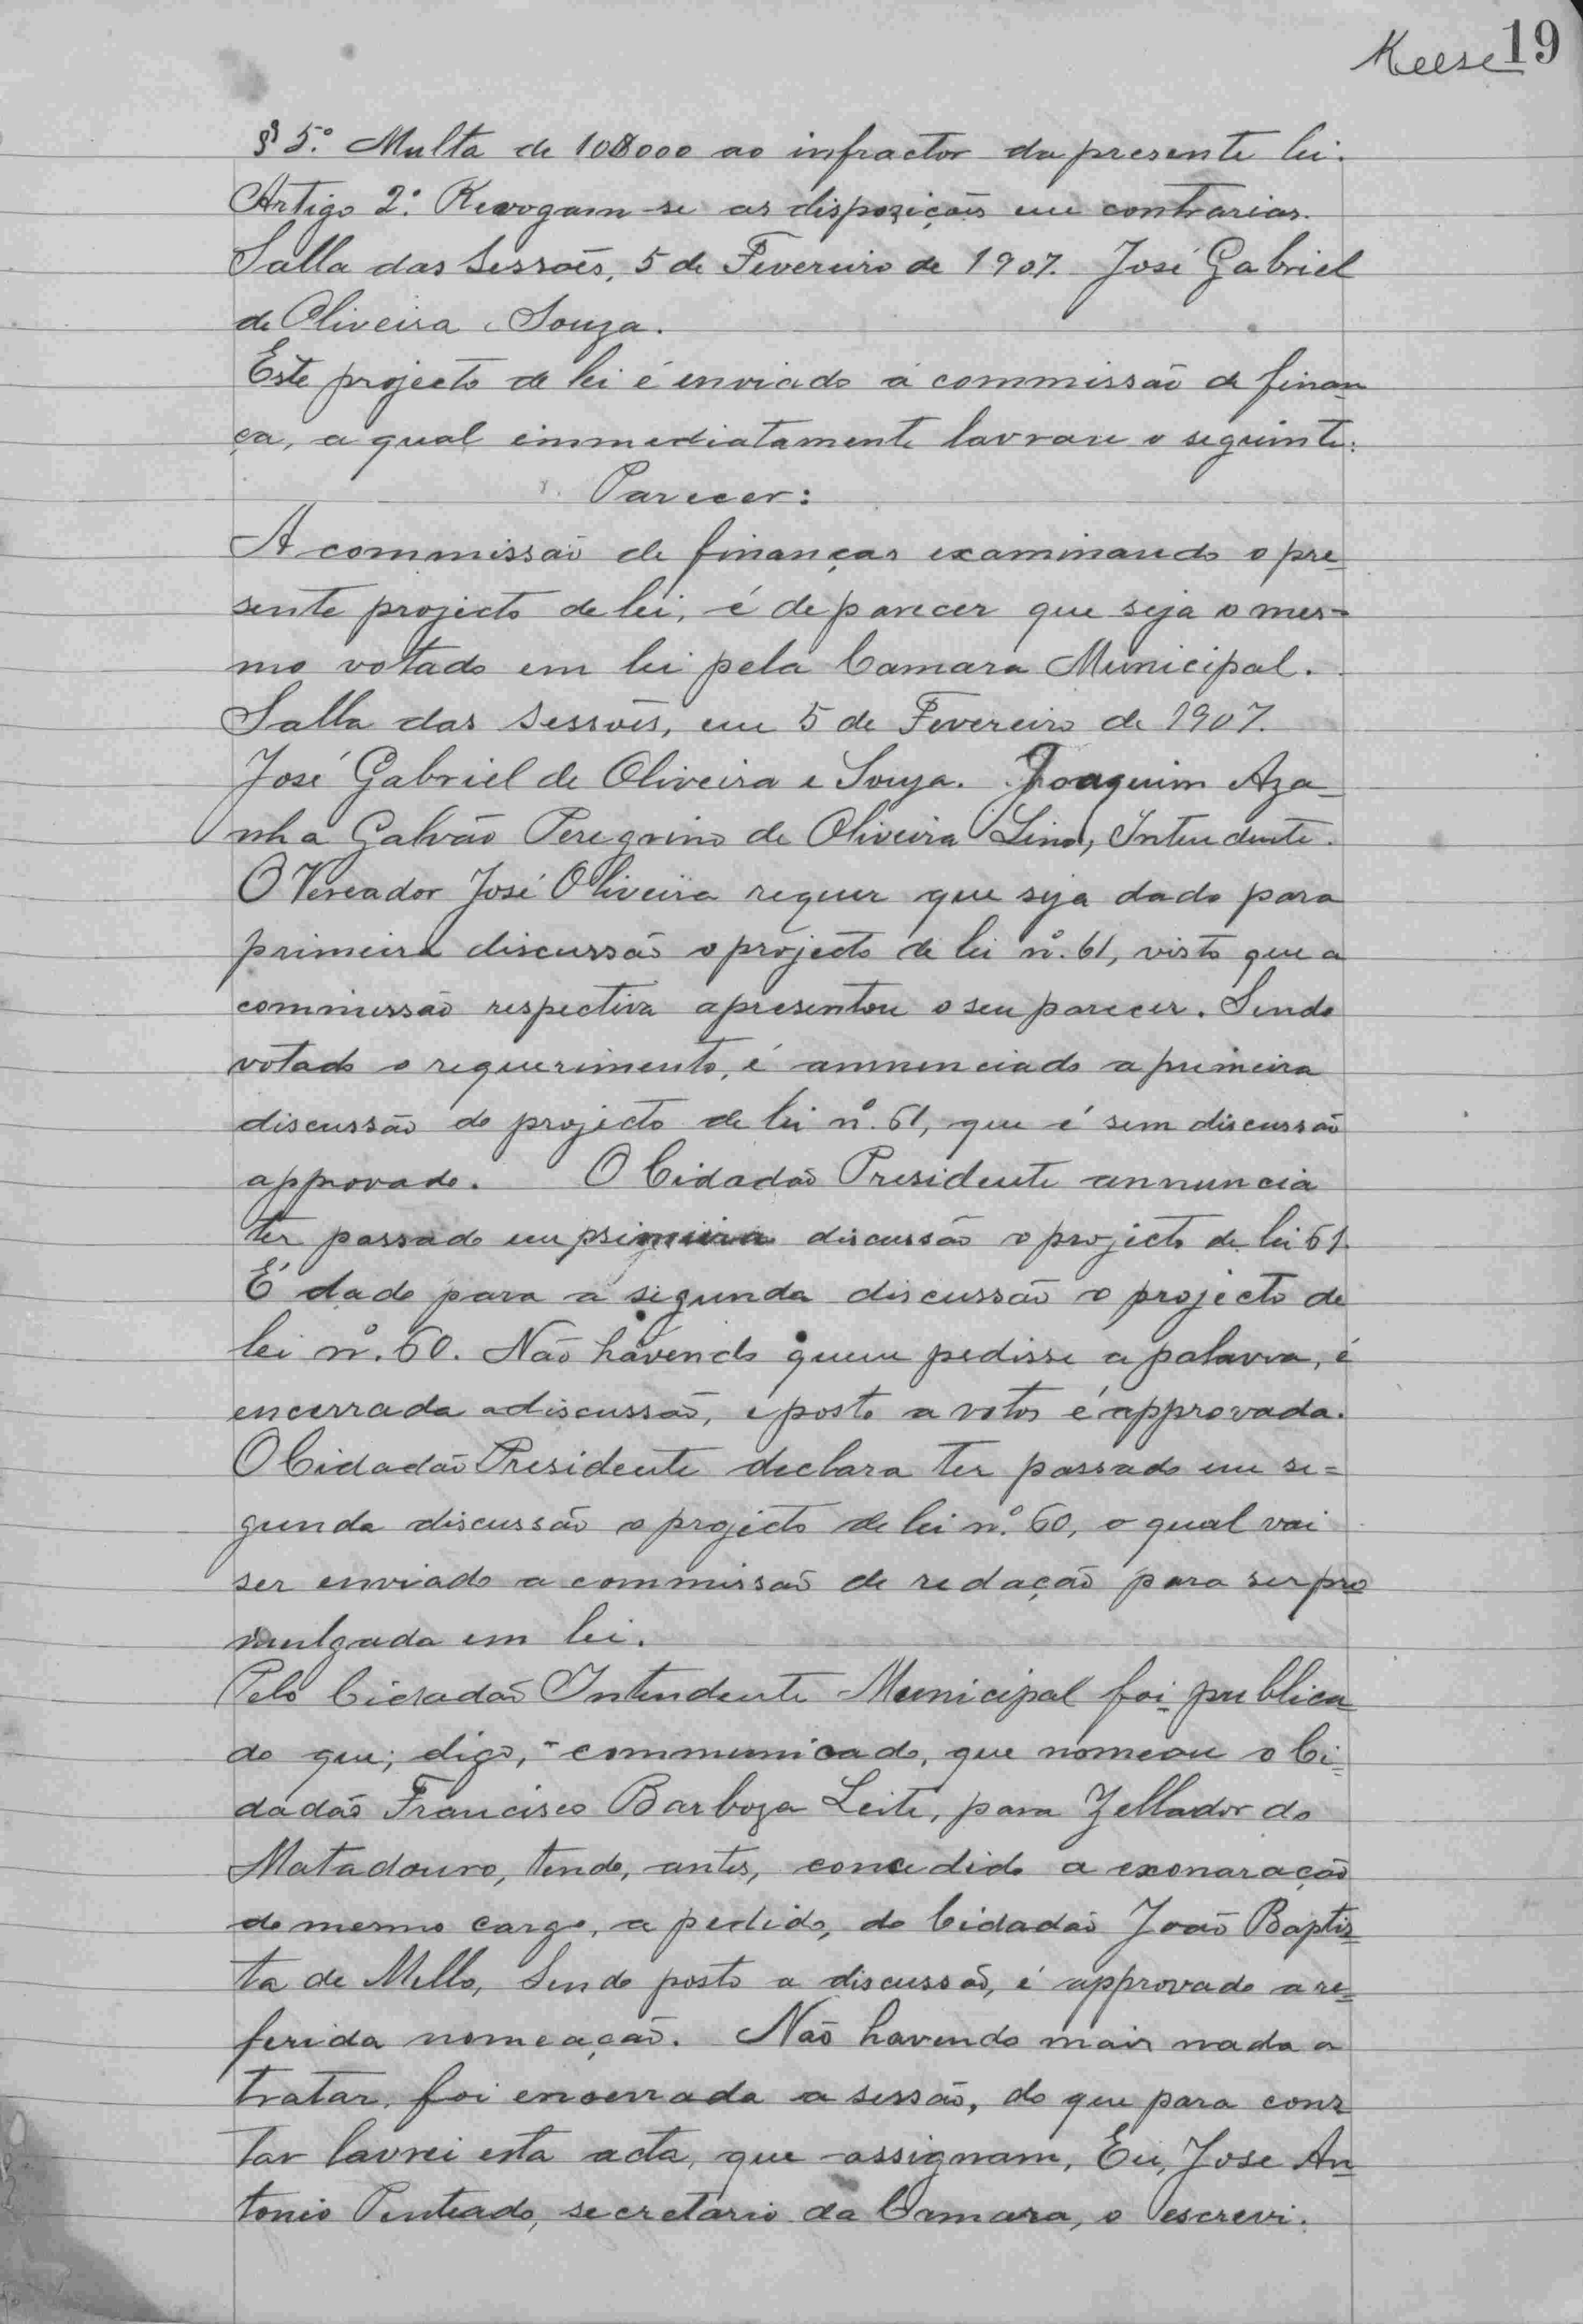 Keese 19
§ 5º. Multa de 10$000 ao infractor da presente lei.
Artigo 2º. Revogam-se as disposições em contrarias.
Salla das Sessões, 5 de Fevereiro de 1907. José Gabriel
de Oliveira e Souza.
Este projecto de lei é enviado á commissão de finan-
ça, a qual immediatamente lavrou o seguinte:
Parecer:
A commissão de finanças examinando o pre-
sente projecto de lei, é de parecer que seja o mes-
mo votado em lei pela Camara Municipal.
Salla das Sessões, em 5 de Fevereiro de 1907.
José Gabriel de Oliveira e Souza. Joaquim Aza-
nha Galvão Peregrino de Oliveira Lino, Intendente.
O Vereador José Oliveira requer que seja dado para
primeira discussão o projecto de lei nº. 61, visto que a
commissão respectiva apresentou o seu parecer. Sendo
votado o requerimento, é annunciado a primeira
discussão do projecto de lei nº. 61, que é sem discussão
approvado. O Cidadão Presidente annuncia
ter passado em primeira discussão o projecto de lei 61.
É dado para a segunda discussão o projecto de
lei nº. 60. Não havendo quem pedisse a palavra, é
encerrada a discussão, e posto a votos é approvada.
O Cidadão Presidente declara ter passado em se=
gunda discussão o projecto de lei nº. 60, o qual vai
ser enviado a commissão de redação para ser pro
mulgada em lei.
Pelo Cidadão Intendente Municipal foi publica
do que, digo, communicado, que nomeou o Ci=
dadão Francisco Barboza Leite, para Zellador do
Matadouro, tendo, antes, concedido a exonaração
do mesmo cargo, a pedido, do Cidadão João Baptis=
ta de Mello, Sendo posto a discussão, é approvado a re=
ferida nomeação. Não havendo mais nada a
tratar, foi encerrada a sessão, do que para cons
tar lavrei esta acta, que assignam, Eu, Jose An
tonio Penteado, secretario da Camara, o escrevi.